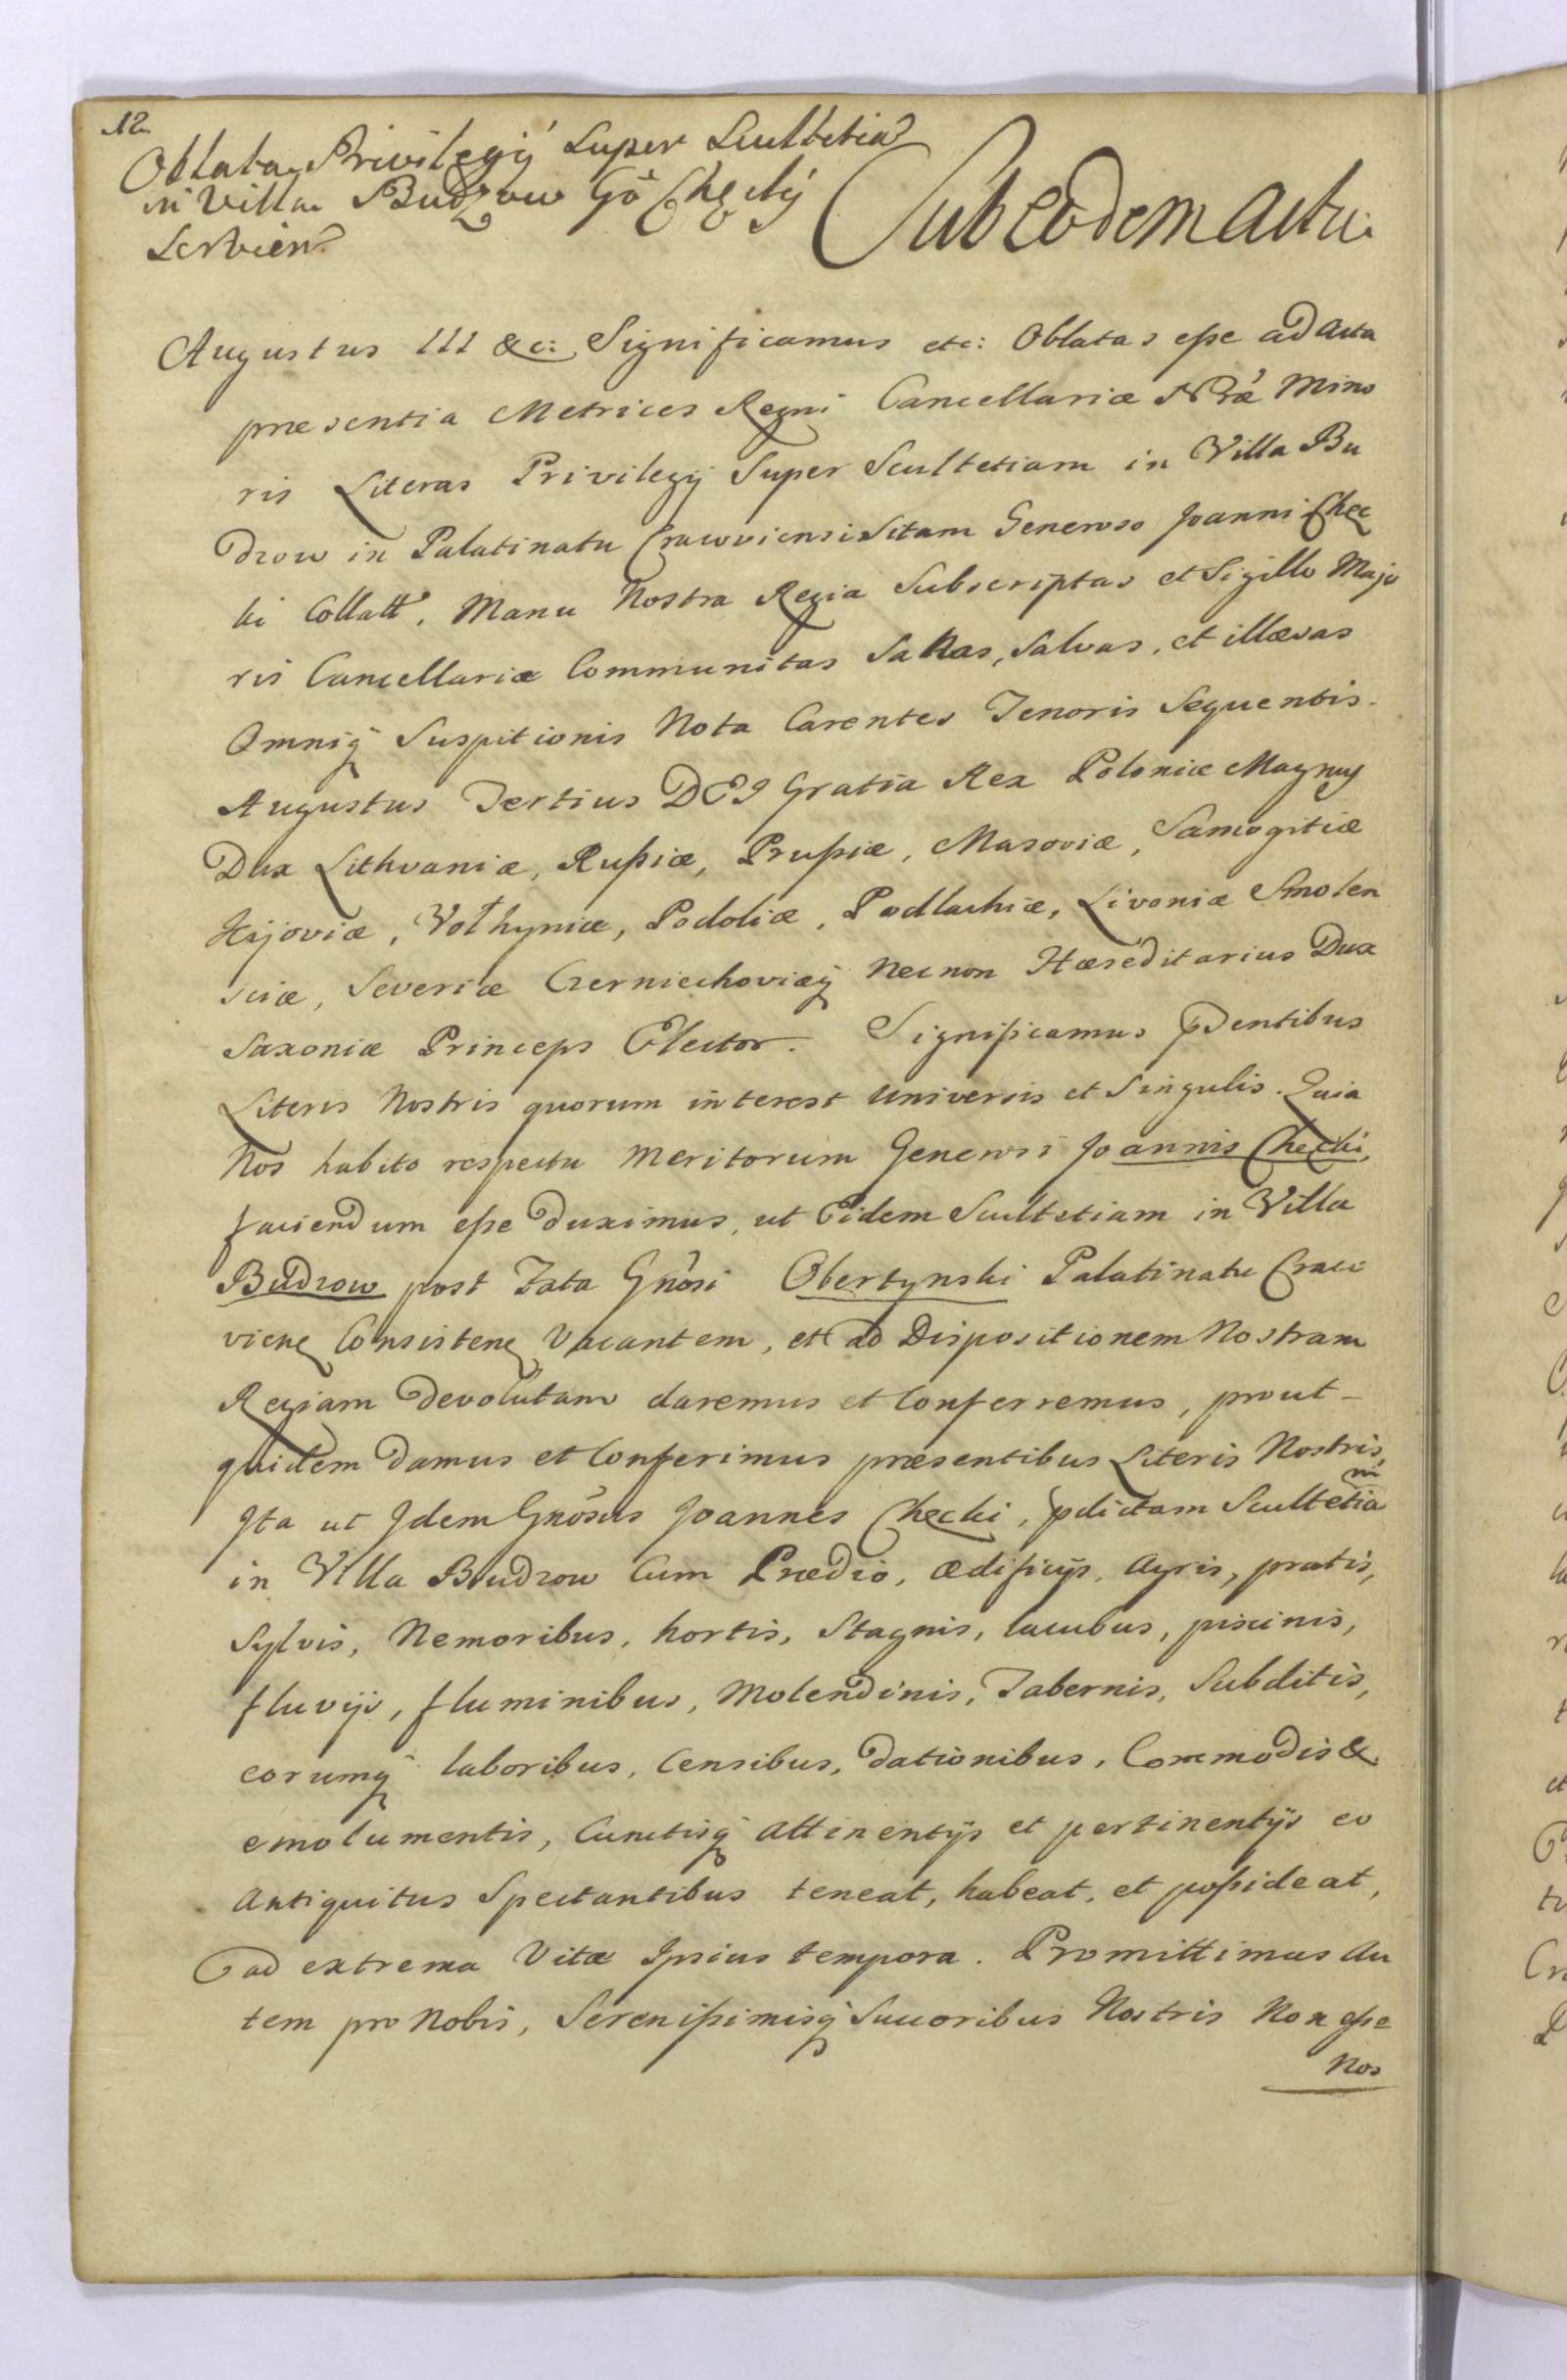 12.
Oblata Privilegij Super Scultetia
in Villa Budzow Gō Chęcky
Servien.
Sub eodem actu.
Augustus III &c: Significamus etc: Oblatas esse ad acta
præsentia Metrices Regni Cancellariæ Nræ Mino
ris Literas Privilegij Super Scultetiam in Villa Bu
dzow in Palatinatu Cracoviensi Sitam Generoso Joanni Chęc
ki Collatt, Manu Nostra Regia Subscriptas et Sigillo Majo
ris Cancellariæ Communitas Sanas, Salvas, et illæsas
Omniq Suspitionis Nota Carentes Tenoris Sequentis.
Augustus Tertius DEI Gratia Rex Poloniæ Magnus
Dux Lithvaniæ, Russiæ, Prussiæ, Masoviæ, Samogitiæ
Kijoviæ, Volhyniæ, Podoliæ, Podlachiæ, Livoniæ Smolen
sciæ, Severiæ Czerniechoviæq Necnon Hæreditarius Dux
Saxoniæ Princeps Elector. Significamus pdentibus
Literis Nostris quorum interest Universis et Singulis. Quia
Nos habito respectu Meritorum Generosi Joannis Chęcki,
faciendum esse duximus, ut Eidem Scultetiam in Villa
Budzow post Fata Gnōsi Obertynski Palatinatu Craco
vien Consisten Vacantem, et ad Dispositionem Nostram
Regiam devolutam daremus et Conferremus, prout-
quidem damus et Conferimus præsentibus Literis Nostris,
Ita ut Idem Gnōsus Joannes Chęcki, pdictam Scultetiam
in Villa Budzow Cum Prædio, ædificijs, agris, pratis,
Sylvis, Nemoribus, hortis, Stagnis, lacubus, piscinis,
fluvijs, fluminibus, Molendinis, Tabernis, Subditis,
eorumq laboribus, Censibus, dationibus, Commodis &
emolumentis, Cunctisq attinentijs et pertinentijs eo
Antiquitus Spectantibus teneat, habeat, et possideat,
ad extrema Vitæ Ipsius tempora. Promittimus Au
tem pro Nobis, Serenissimisq Succoribus Nostris Non esse
Nos